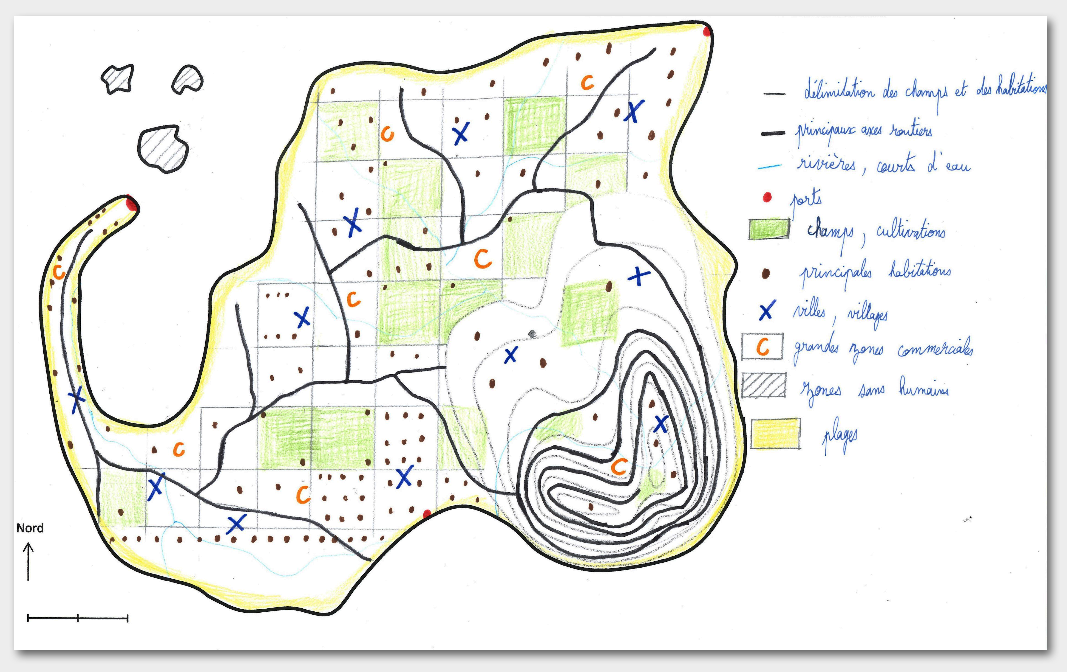 délimitation des champs et des habitations
principaux axes routiers
rivières, courts d'eau
ports
champs, cultivations
principales habitations
villes, villages
C grandes zones commerciales
zones sans humains
plages
Nord
C
C
C
C
C
C
C
C